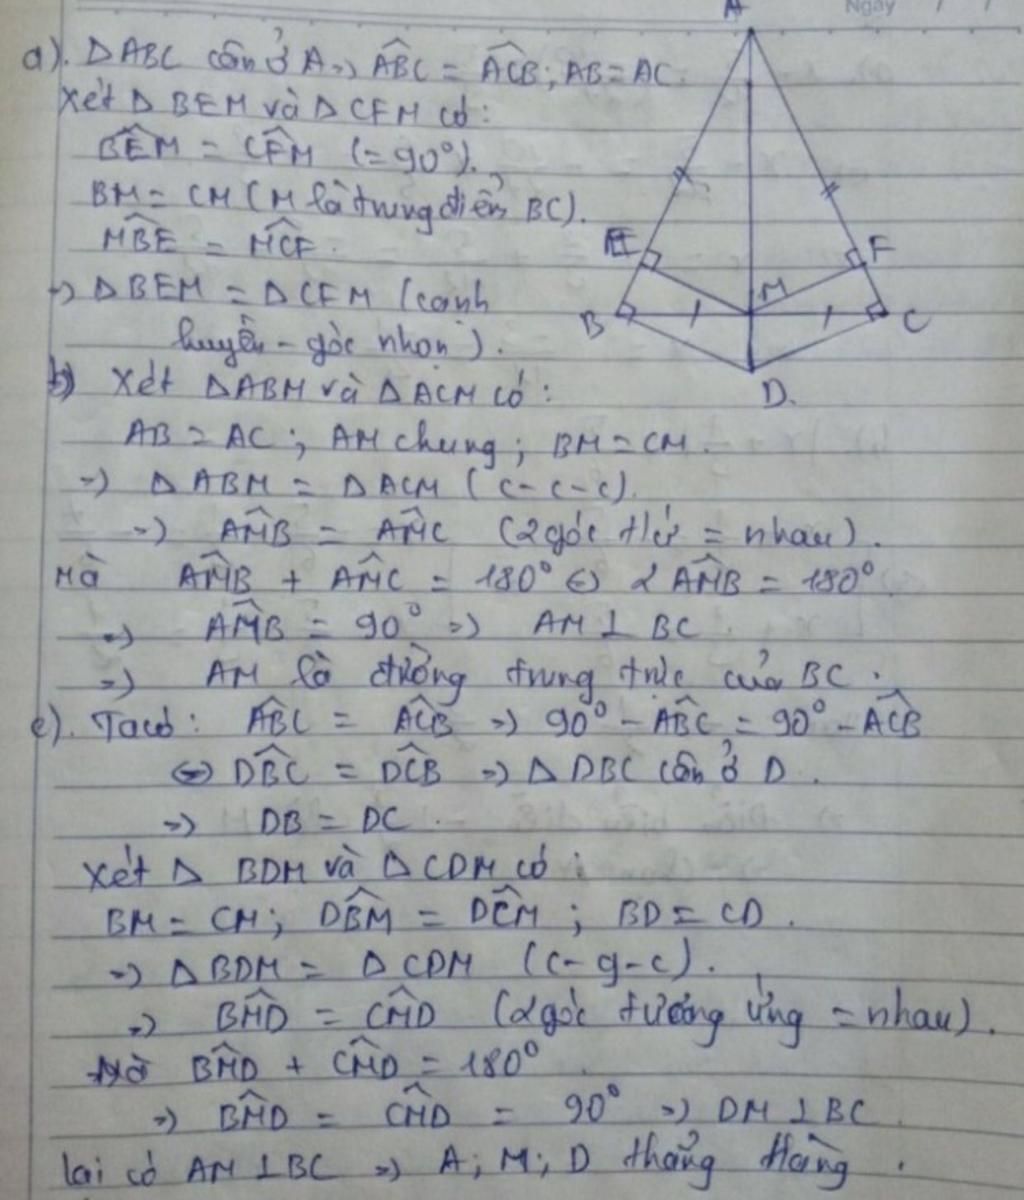 Ngày
a). ΔABC cân ở A => ∠ABC = ∠ACB; AB = AC.
Xét Δ BEM và Δ CFM có:
∠BEM = ∠CFM (= 90°).
BM = CM (M là trung điểm BC).
∠MBE = ∠MCF.
=> Δ BEM = Δ CFM (cạnh
huyền - góc nhọn).
b) Xét ΔABM và ΔACM có:
AB = AC; AM chung; BM = CM.
=> Δ ABM = Δ ACM (c-c-c).
=> ∠AMB = ∠AMC (2 góc tứ = nhau).
Mà ∠AMB + ∠AMC = 180° <=> 2∠AMB = 180°
=> ∠AMB = 90° => AM ⊥ BC.
=> AM là đường trung trực của BC.
c). Ta có: ∠ABC = ∠ACB => 90° - ∠ABC = 90° - ∠ACB
<=> ∠DBC = ∠DCB => Δ DBC cân ở D.
=> DB = DC.
Xét Δ BDM và Δ CDM có:
BM = CM; ∠DBM = ∠DCM; BD = CD.
=> Δ BDM = Δ CDM (c-g-c).
=> ∠BMD = ∠CMD (2 góc tương ứng = nhau).
Mà ∠BMD + ∠CMD = 180°
=> ∠BMD = ∠CMD = 90° => DM ⊥ BC.
lại có AM ⊥ BC => A; M; D thẳng hàng.
A
E
F
M
B
C
D.